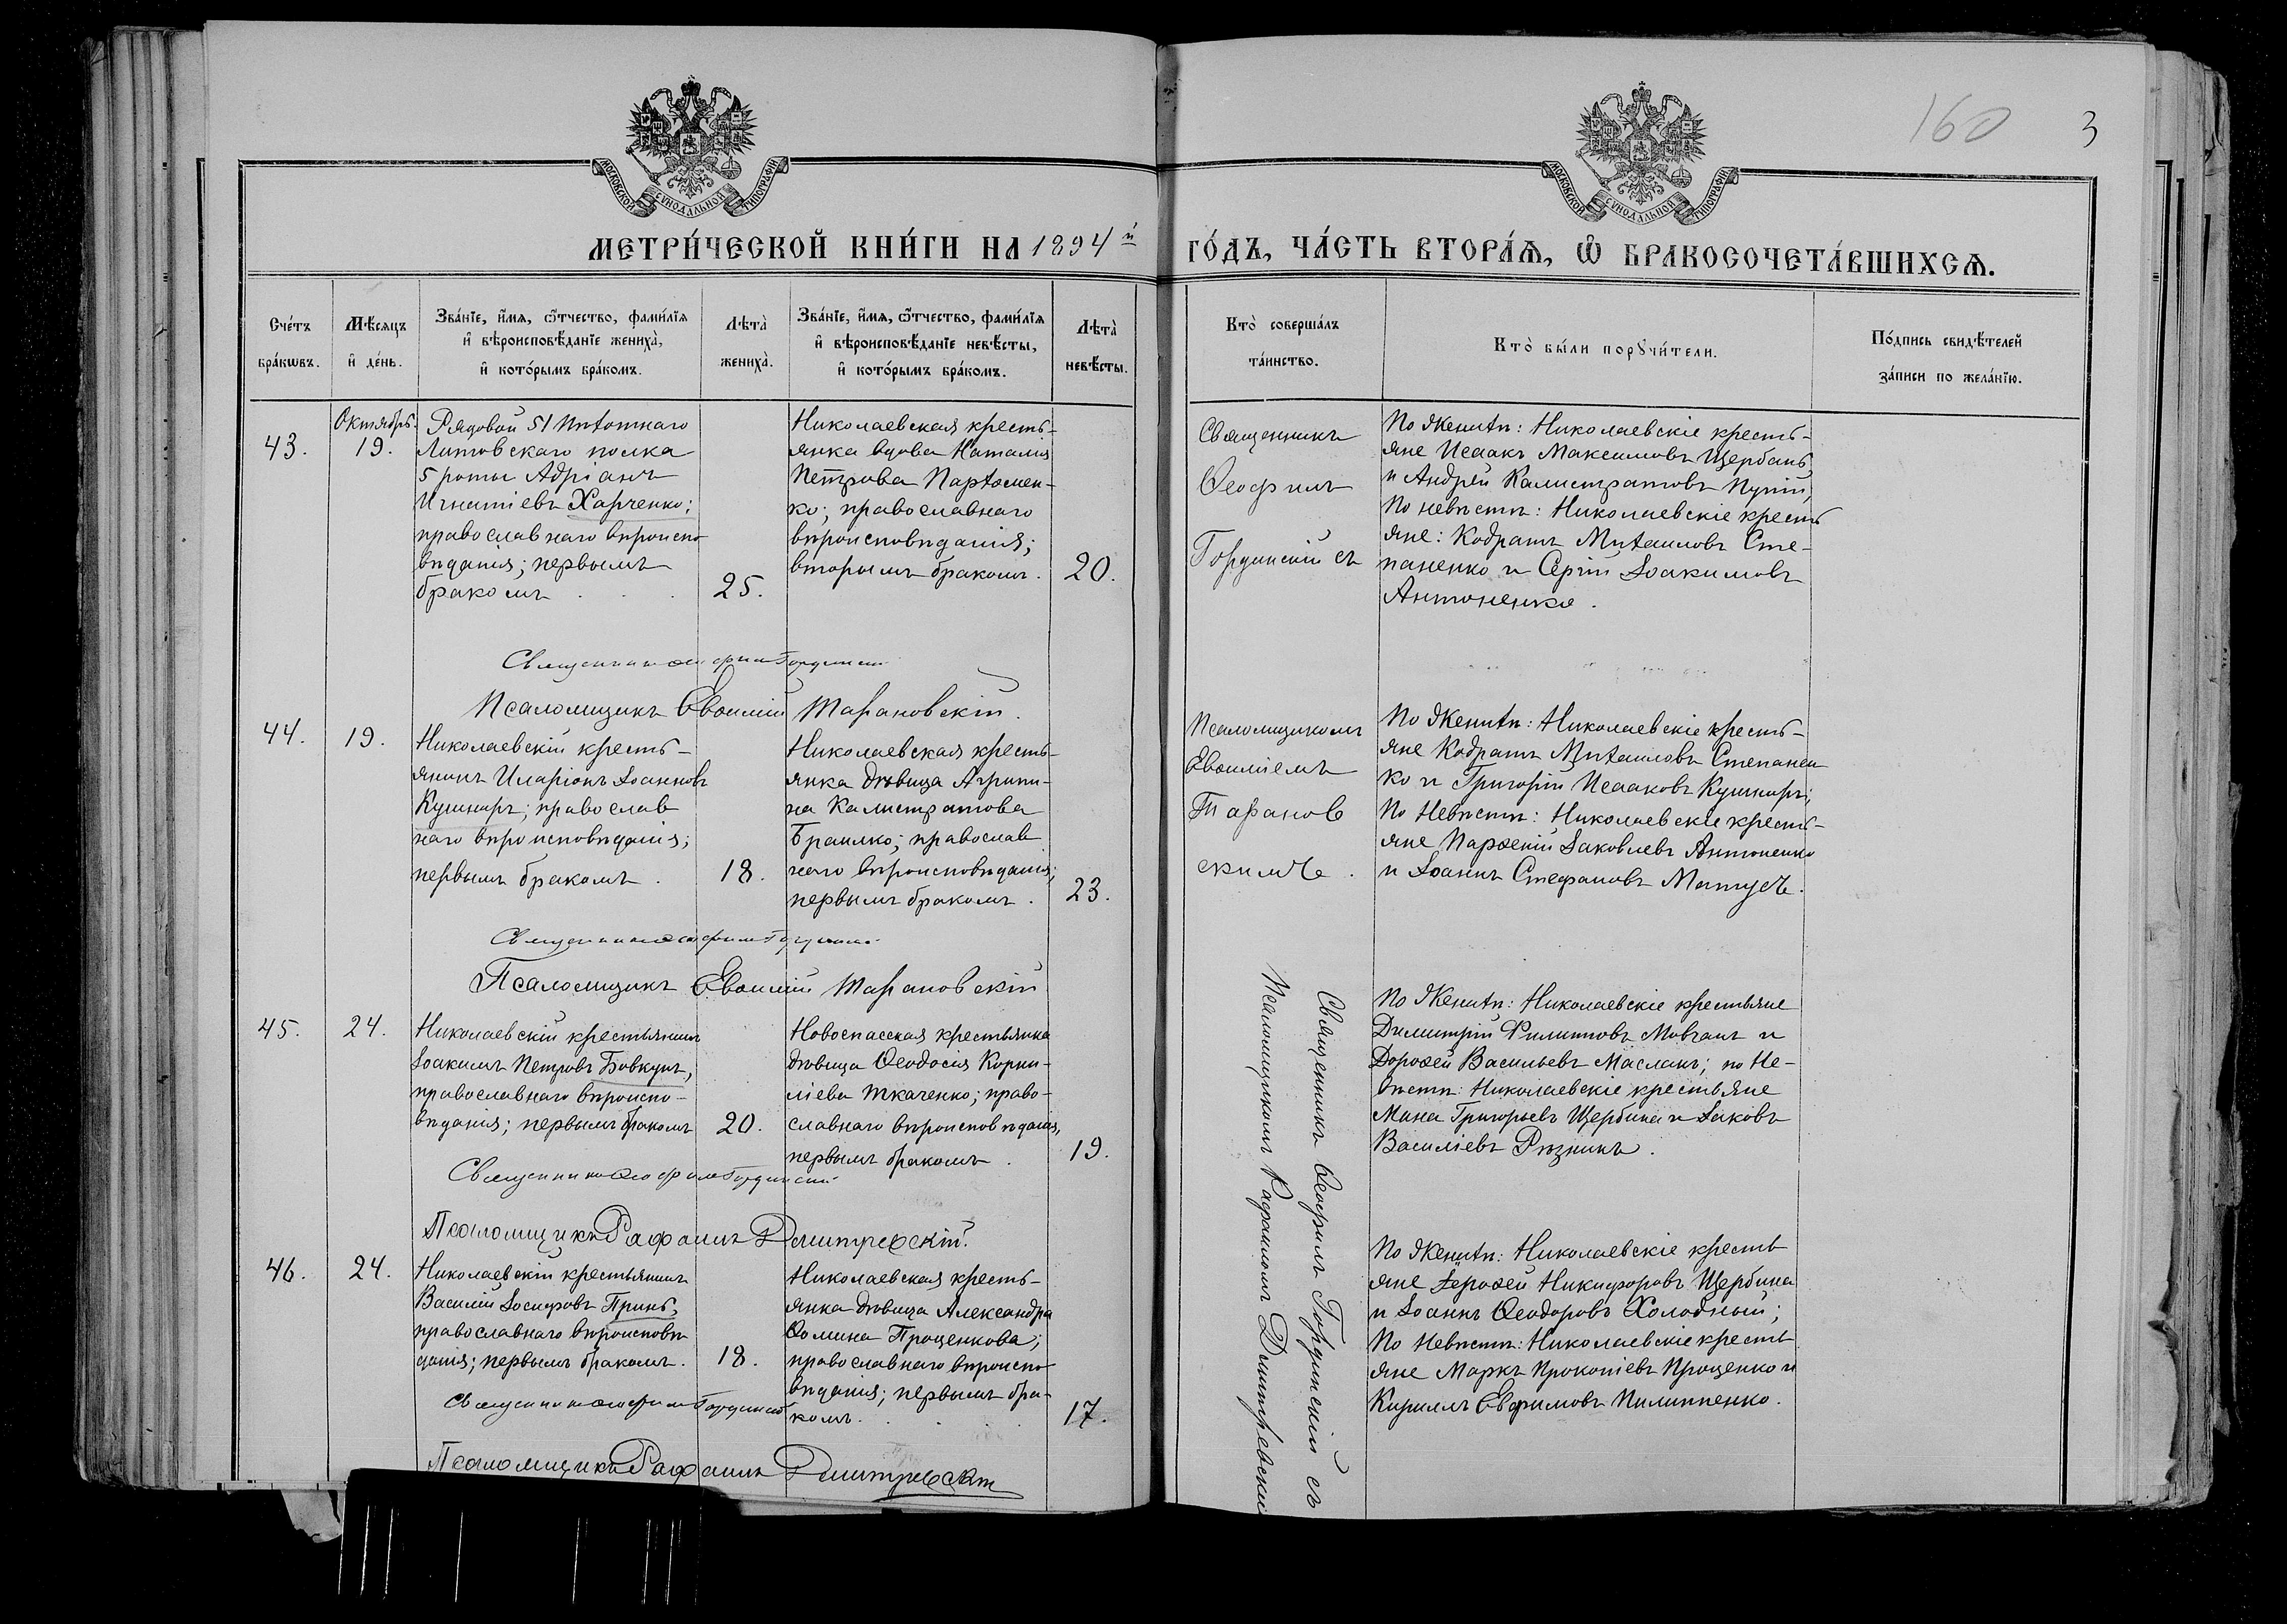 160
3
МОСКОВСКОЙ СѴНОДАЛЬНОЙ ТИПОГРАФІИ
МОСКОВСКОЙ СѴНОДАЛЬНОЙ ТИПОГРАФІИ
МЕТРИ́ЧЕСКОЙ КНИ́ГИ НА 1894й
ГО́ДЪ, ЧА́СТЬ ВТОРА́Ѧ, Ѽ БРАКОСОЧЕТА́ВШИХСѦ.
Сче́тъ бра́кѡвъ.
Мѣ́сяцъ и҆ де́нь.
Зва́нїе, и҆́мѧ, ѻ҆́тчество, фами́лїѧ
и҆ вѣроисповѣ́данїе жениха̀,
и҆ кото́рымъ бра́комъ.
Лѣта̀ жениха̀.
Зва́нїе, и҆́мѧ, ѻ҆́тчество, фами́лїѧ
и҆ вѣроисповѣ́данїе невѣ́сты,
и҆ кото́рымъ бра́комъ.
Лѣта̀ невѣ́сты.
Кто̀ соверша́лъ
та́инство.
Кто̀ бы́ли порꙋчи́тели.
По́дпись свидѣ́телей
за́писи по жела́нїю.
43.
Октябрь.
19.
Рядовой 51 пѣхотнаго
Литовскаго полка
5 роты Адріанъ
Игнатіевъ Харченко;
православнаго вѣроиспо
вѣданія; первымъ
бракомъ . . .
25.
Николаевская кресть-
янка вдова Наталія
Петрова Пархомен-
ко; православнаго
вѣроисповѣданія;
вторымъ бракомъ.
20.
Священникъ
Ѳеофилъ
Гординскій съ
По Женихѣ: Николаевскіе кресть-
яне Исаакъ Максимовъ Щербань
и Андрей Калистратовъ Путій,
По невѣстѣ: Николаевскіе кресть
яне: Кодратъ Михаиловъ Сте-
паненко и Сергій Іоакимовъ
Антоненко.
Священникъ Ѳеофилъ Гординскій
Псаломщикъ Евѳимій Тарановскій.
44.
19.
Николаевскій кресть-
янинъ Иларіонъ Іоанновъ
Кушниръ; православ
наго вѣроисповѣданія;
первымъ бракомъ .
18.
Николаевская кресть-
янка дѣвица Агрипи-
на Калистратова
Браилко; православ
наго вѣроисповѣданія;
первымъ бракомъ .
23.
Псаломщикомъ
Евѳиміемъ
Таранов
скимъ .
По Женихѣ: Николаевскіе кресть-
яне Кодратъ Михаиловъ Степанен
ко и Григорій Исааковъ Кушниръ;
По Невѣстѣ: Николаевскіе кресть-
яне Парѳеній Іаковлевъ Антоненко
и Іоаннъ Стефановъ Матусъ.
Священникъ Ѳеофилъ Гординскій
Псаломщикъ Евѳимій Тарановскій
45.
24.
Николаевскій крестьянинъ
Іоакимъ Петровъ Бовкунъ,
православнаго вѣроиспо-
вѣданія; первымъ бракомъ
20.
Новоспасская крестьянка
дѣвица Ѳеодосія Корни-
ліева Ткаченко; право-
славнаго вѣроисповѣданія,
первымъ бракомъ .
19.
Священникъ Ѳеофилъ Гординскій съ
Псаломщикомъ Рафаиломъ Дмитревским
По Женихѣ: Николаевскіе крестьяне
Димитрій Филиповъ Мовчанъ и
Дороѳей Васильевъ Масланъ; по Не-
вѣстѣ: Николаевскіе крестьяне
Мина Григорьевъ Щербина и Іаковъ
Василіевъ Рѣзникъ.
Священникъ Ѳеофилъ Гординскій
Псаломщикъ Рафаилъ Дмитревскій.
46.
24.
Николаевскій крестьянинъ
Василій Іосифовъ Принь,
православнаго вѣроисповѣ
данія; первымъ бракомъ.
18.
Николаевская кресть-
янка дѣвица Александра
Ѳомина Проценкова;
православнаго вѣроиспо
вѣданія; первымъ бра-
комъ. . . .
17.
По Женихѣ: Николаевскіе кресть
яне Дороѳей Никифоровъ Щербина
и Іоаннъ Ѳеодоровъ Холодный;
По Невѣстѣ: Николаевскіе кресть
яне Маркъ Прокопіевъ Проценко и
Кириллъ Евфимовъ Пилипенко.
Священникъ Ѳеофилъ Гординскій
Псаломщикъ Рафаилъ Дмитревскій